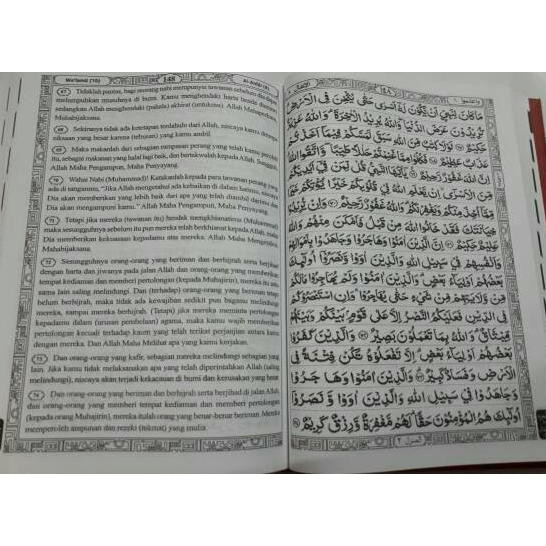 Wa'lamû (10) 148 Al-Anfâl (8)
67 Tidaklah pantas, bagi seorang nabi mempunyai tawanan sebelum dia dapat
melumpuhkan musuhnya di bumi. Kamu menghendaki harta benda duniawi
sedangkan Allah menghendaki (pahala) akhirat (untukmu). Allah Mahaperkasa,
Mahabijaksana.
68 Sekiranya tidak ada ketetapan terdahulu dari Allah, niscaya kamu ditimpa
siksaan yang besar karena (tebusan) yang kamu ambil.
69 Maka makanlah dari sebagian rampasan perang yang telah kamu peroleh
itu, sebagai makanan yang halal lagi baik, dan bertakwalah kepada Allah. Sungguh,
Allah Maha Pengampun, Maha Penyayang.
70 Wahai Nabi (Muhammad)! Katakanlah kepada para tawanan perang yang
ada di tanganmu, "Jika Allah mengetahui ada kebaikan di dalam hatimu, niscaya
Dia akan memberikan yang lebih baik dari apa yang telah diambil darimu dan
Dia akan mengampuni kamu." Allah Maha Pengampun, Maha Penyayang.
71 Tetapi jika mereka (tawanan itu) hendak mengkhianatimu (Muhammad)
maka sesungguhnya sebelum itu pun mereka telah berkhianat kepada Allah, maka
Dia memberikan kekuasaan kepadamu atas mereka. Allah Maha Mengetahui,
Mahabijaksana.
72 Sesungguhnya orang-orang yang beriman dan berhijrah serta berjihad
dengan harta dan jiwanya pada jalan Allah dan orang-orang yang memberikan
tempat kediaman dan memberi pertolongan (kepada Muhajirin), mereka itu satu
sama lain saling melindungi. Dan (terhadap) orang-orang yang beriman tetapi
belum berhijrah, maka tidak ada kewajiban sedikit pun bagimu melindungi
mereka, sampai mereka berhijrah. (Tetapi) jika mereka meminta pertolongan
kepadamu dalam (urusan pembelaan) agama, maka kamu wajib memberikan
pertolongan kecuali terhadap kaum yang telah terikat perjanjian antara kamu
dengan mereka. Dan Allah Maha Melihat apa yang kamu kerjakan.
73 Dan orang-orang yang kafir, sebagian mereka melindungi sebagian yang
lain. Jika kamu tidak melaksanakan apa yang telah diperintahkan Allah (saling
melindungi), niscaya akan terjadi kekacauan di bumi dan kerusakan yang besar.
74 Dan orang-orang yang beriman dan berhijrah serta berjihad di jalan Allah,
dan orang-orang yang memberi tempat kediaman dan memberi pertolongan
(kepada orang Muhajirin), mereka itulah orang yang benar-benar beriman. Mereka
memperoleh ampunan dan rezeki (nikmat) yang mulia.
واعلموا ١٠ ١٤٨ الانفال ٨
مَا كَانَ لِنَبِيٍّ اَنْ يَّكُوْنَ لَهٗٓ اَسْرٰى حَتّٰى يُثْخِنَ فِى الْاَرْضِۗ
تُرِيْدُوْنَ عَرَضَ الدُّنْيَاۖ وَاللّٰهُ يُرِيْدُ الْاٰخِرَةَۗ وَاللّٰهُ عَزِيْزٌ
حَكِيْمٌ ٦٧ لَوْلَا كِتٰبٌ مِّنَ اللّٰهِ سَبَقَ لَمَسَّكُمْ فِيْمَآ اَخَذْتُمْ
عَذَابٌ عَظِيْمٌ ٦٨ فَكُلُوْا مِمَّا غَنِمْتُمْ حَلٰلًا طَيِّبًاۖ وَّاتَّقُوا اللّٰهَۗ
اِنَّ اللّٰهَ غَفُوْرٌ رَّحِيْمٌ ٦٩ يٰٓاَيُّهَا النَّبِيُّ قُلْ لِّمَنْ فِيْٓ اَيْدِيْكُمْ
مِّنَ الْاَسْرٰىۙ اِنْ يَّعْلَمِ اللّٰهُ فِيْ قُلُوْبِكُمْ خَيْرًا يُّؤْتِكُمْ خَيْرًا
مِّمَّآ اُخِذَ مِنْكُمْ وَيَغْفِرْ لَكُمْۗ وَاللّٰهُ غَفُوْرٌ رَّحِيْمٌ ٧٠ وَاِنْ يُّرِيْدُوْا
خِيَانَتَكَ فَقَدْ خَانُوا اللّٰهَ مِنْ قَبْلُ فَاَمْكَنَ مِنْهُمْۗ وَاللّٰهُ
عَلِيْمٌ حَكِيْمٌ ٧١ اِنَّ الَّذِيْنَ اٰمَنُوْا وَهَاجَرُوْا وَجَاهَدُوْا بِاَمْوَالِهِمْ
وَاَنْفُسِهِمْ فِيْ سَبِيْلِ اللّٰهِ وَالَّذِيْنَ اٰوَوْا وَّنَصَرُوْٓا اُولٰۤىِٕكَ
بَعْضُهُمْ اَوْلِيَاۤءُ بَعْضٍۗ وَالَّذِيْنَ اٰمَنُوْا وَلَمْ يُهَاجِرُوْا مَا لَكُمْ
مِّنْ وَّلَايَتِهِمْ مِّنْ شَيْءٍ حَتّٰى يُهَاجِرُوْاۚ وَاِنِ اسْتَنْصَرُوْكُمْ
فِى الدِّيْنِ فَعَلَيْكُمُ النَّصْرُ اِلَّا عَلٰى قَوْمٍۢ بَيْنَكُمْ وَبَيْنَهُمْ
مِّيْثَاقٌۗ وَاللّٰهُ بِمَا تَعْمَلُوْنَ بَصِيْرٌ ٧٢ وَالَّذِيْنَ كَفَرُوْا
بَعْضُهُمْ اَوْلِيَاۤءُ بَعْضٍۗ اِلَّا تَفْعَلُوْهُ تَكُنْ فِتْنَةٌ فِى
الْاَرْضِ وَفَسَادٌ كَبِيْرٌ ٧٣ وَالَّذِيْنَ اٰمَنُوْا وَهَاجَرُوْا
وَجَاهَدُوْا فِيْ سَبِيْلِ اللّٰهِ وَالَّذِيْنَ اٰوَوْا وَّنَصَرُوْٓا
اُولٰۤىِٕكَ هُمُ الْمُؤْمِنُوْنَ حَقًّاۗ لَهُمْ مَّغْفِرَةٌ وَّرِزْقٌ كَرِيْمٌ ٧٤